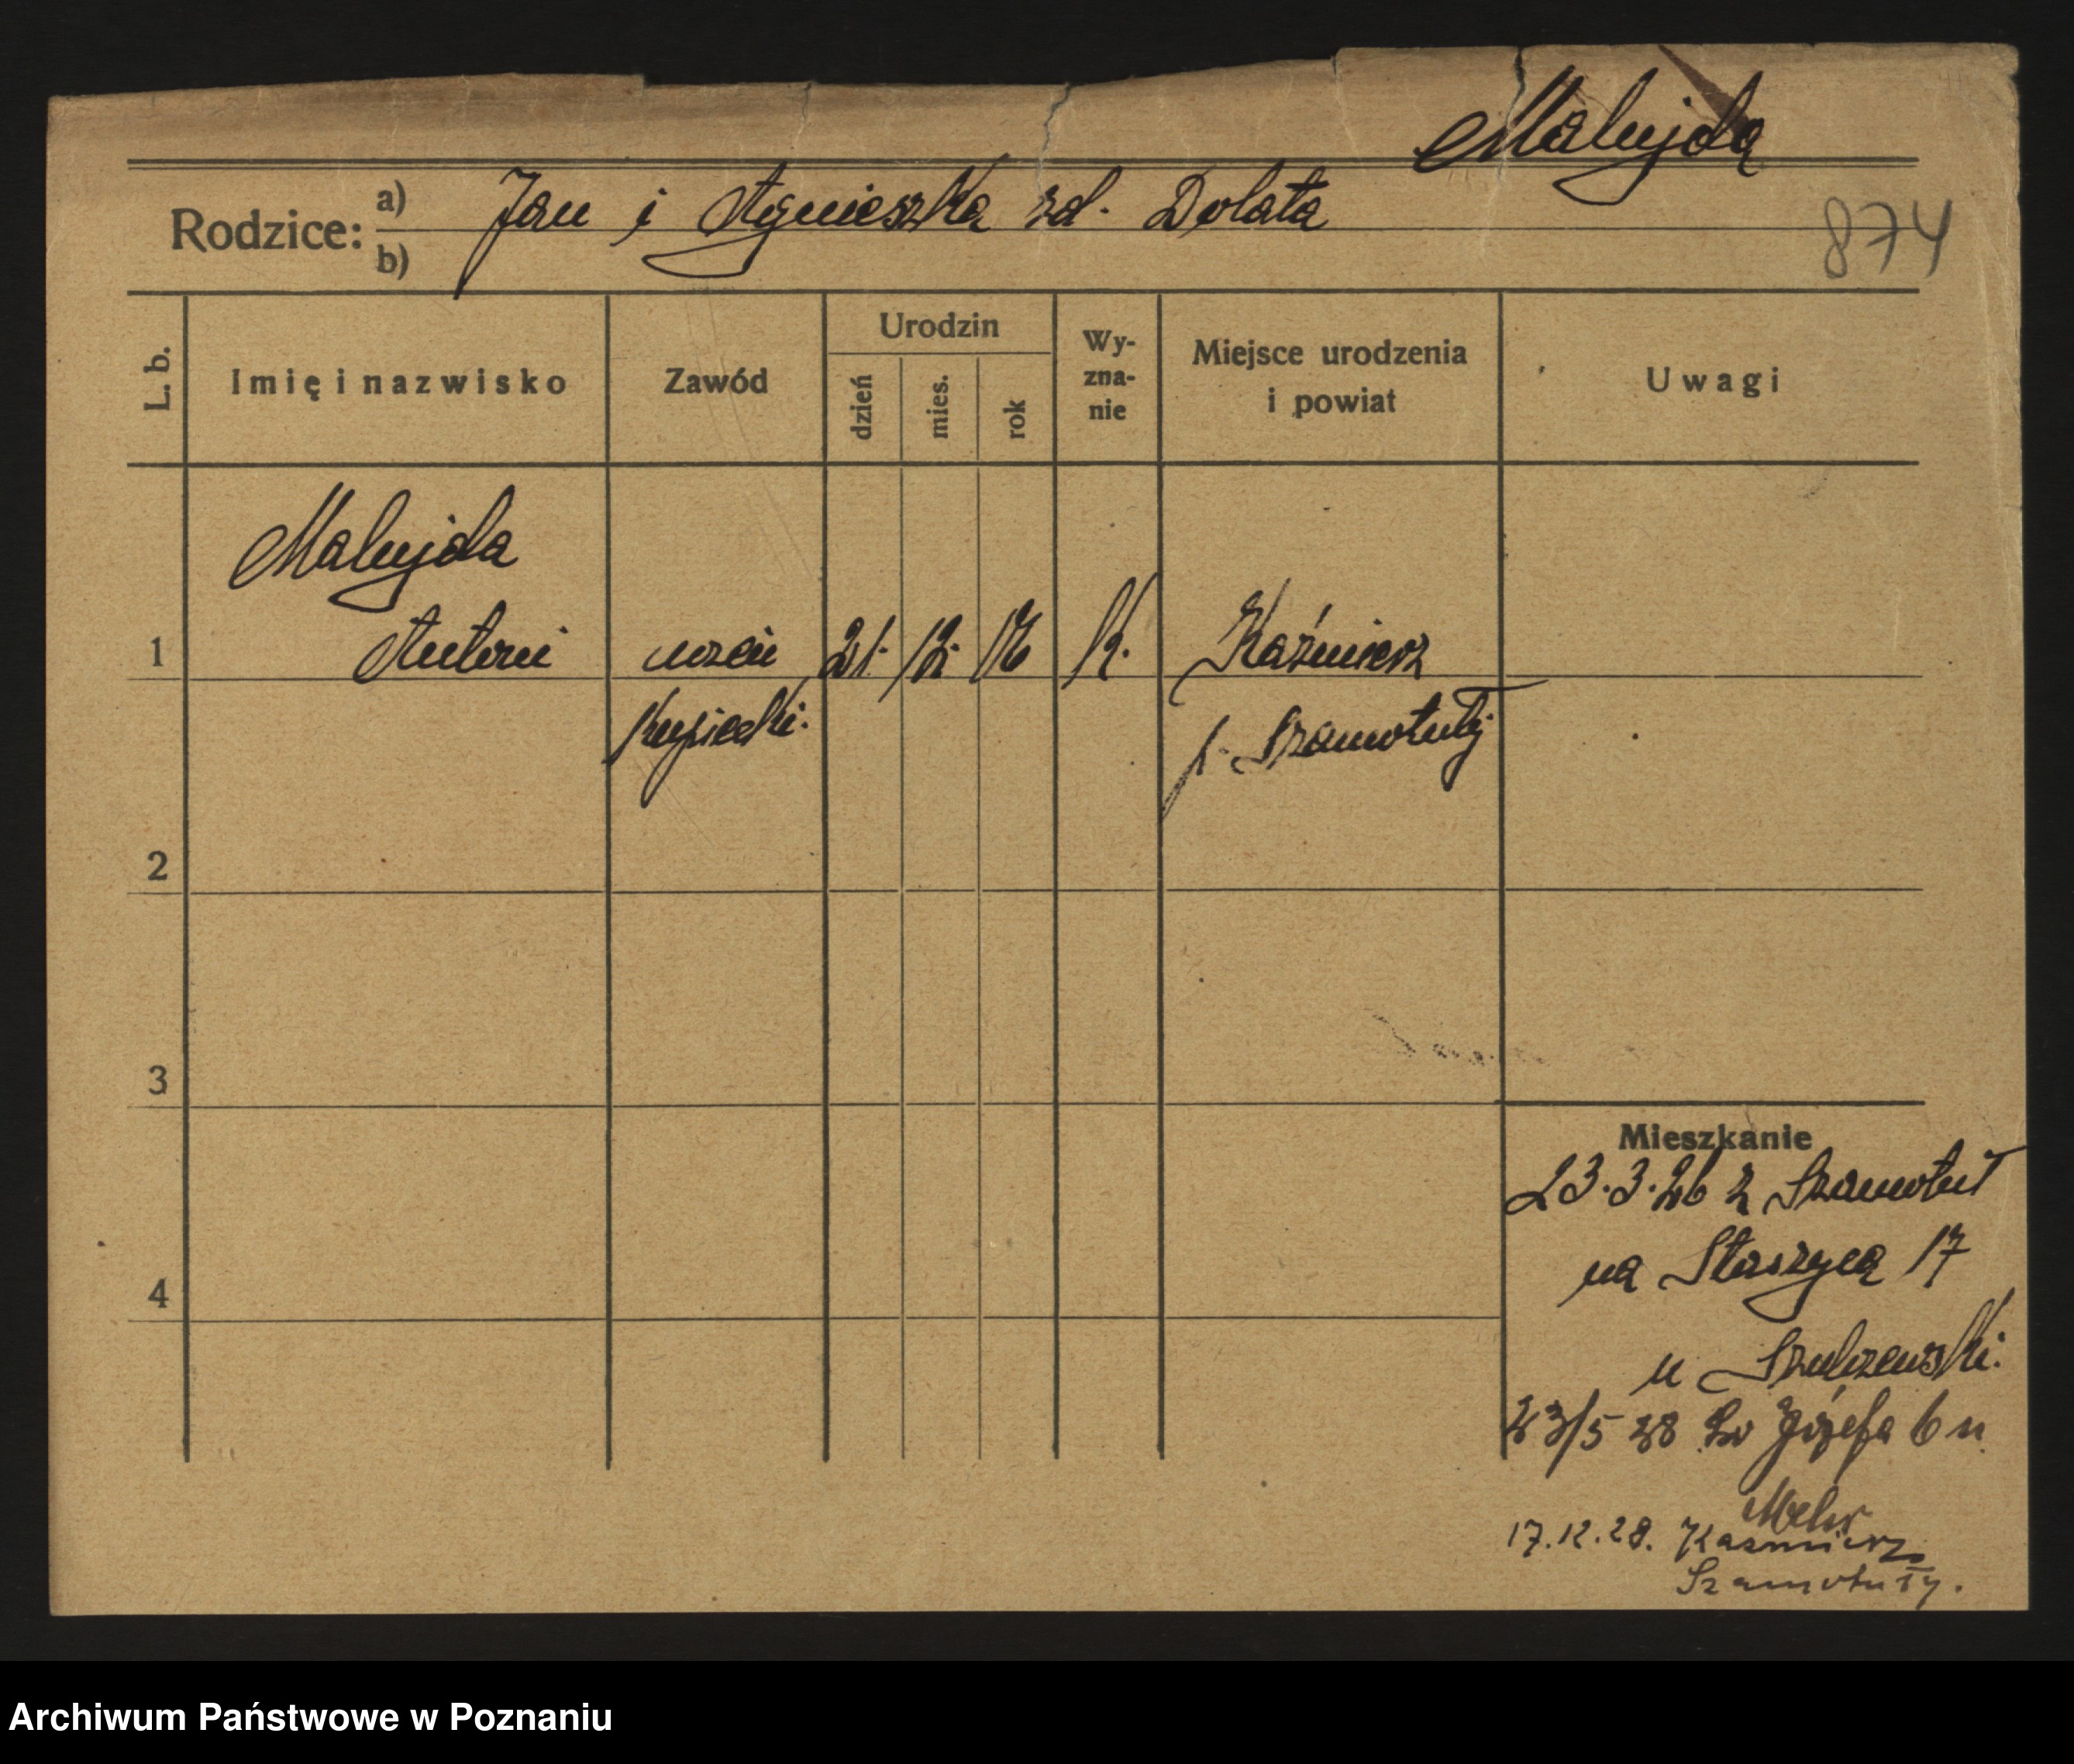 Malujda
Rodzice: a) Jan i Agnieszka zd. Dolata
b)
874
L. b.
Imię i nazwisko
Zawód
Urodzin
dzień
mies.
rok
Wy-
zna-
nie
Miejsce urodzenia
i powiat
Uwagi
Malujda
1 Antoni uczeń 21. 12. K. Kaźmierz
kupiecki. p. Szamotuły
2
3
4
Mieszkanie
23.3.26 z Szamotuł
na Staszyca 17
u Szulczewski.
23/5 28 Św Józefa 6 u
17.12.28. Kazmierz
Szamotuły.
Archiwum Państwowe w Poznaniu